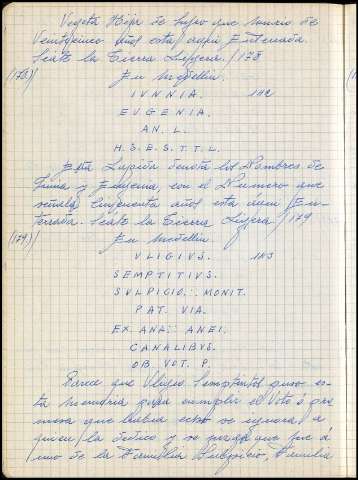 Vegeta Hija de Lupo que murio de
Veinticinco años esta aqui Enterrada.
Seate la Tierra Ligera. /178
(178)/ En Medellin.
IVNNIA. 142
EVGENIA.
AN. L.
H. S. E. S. T. T. L.
Esta Lapida denota los Nombres de
Junia y Eugenia con el Numero que
señala Cinquenta años esta aqui En-
terrada. Seate la Tierra Ligera /179
(179)/ En Medellin
VLIGIVS. 143
SEMPTITIVS.
SVLPICIO ∴ MONIT.
PAT. VIA.
EX. ANA ∷ ANEI.
CANALIBVS.
OB. VOT. P.
Parece que Uligio Semptitio quiso es-
ta memoria para cumplir el Voto ó pro
mesa que habia echo se ignora á
quien la dedico y se que fue á
uno de la Familia Sulpicio, Familia